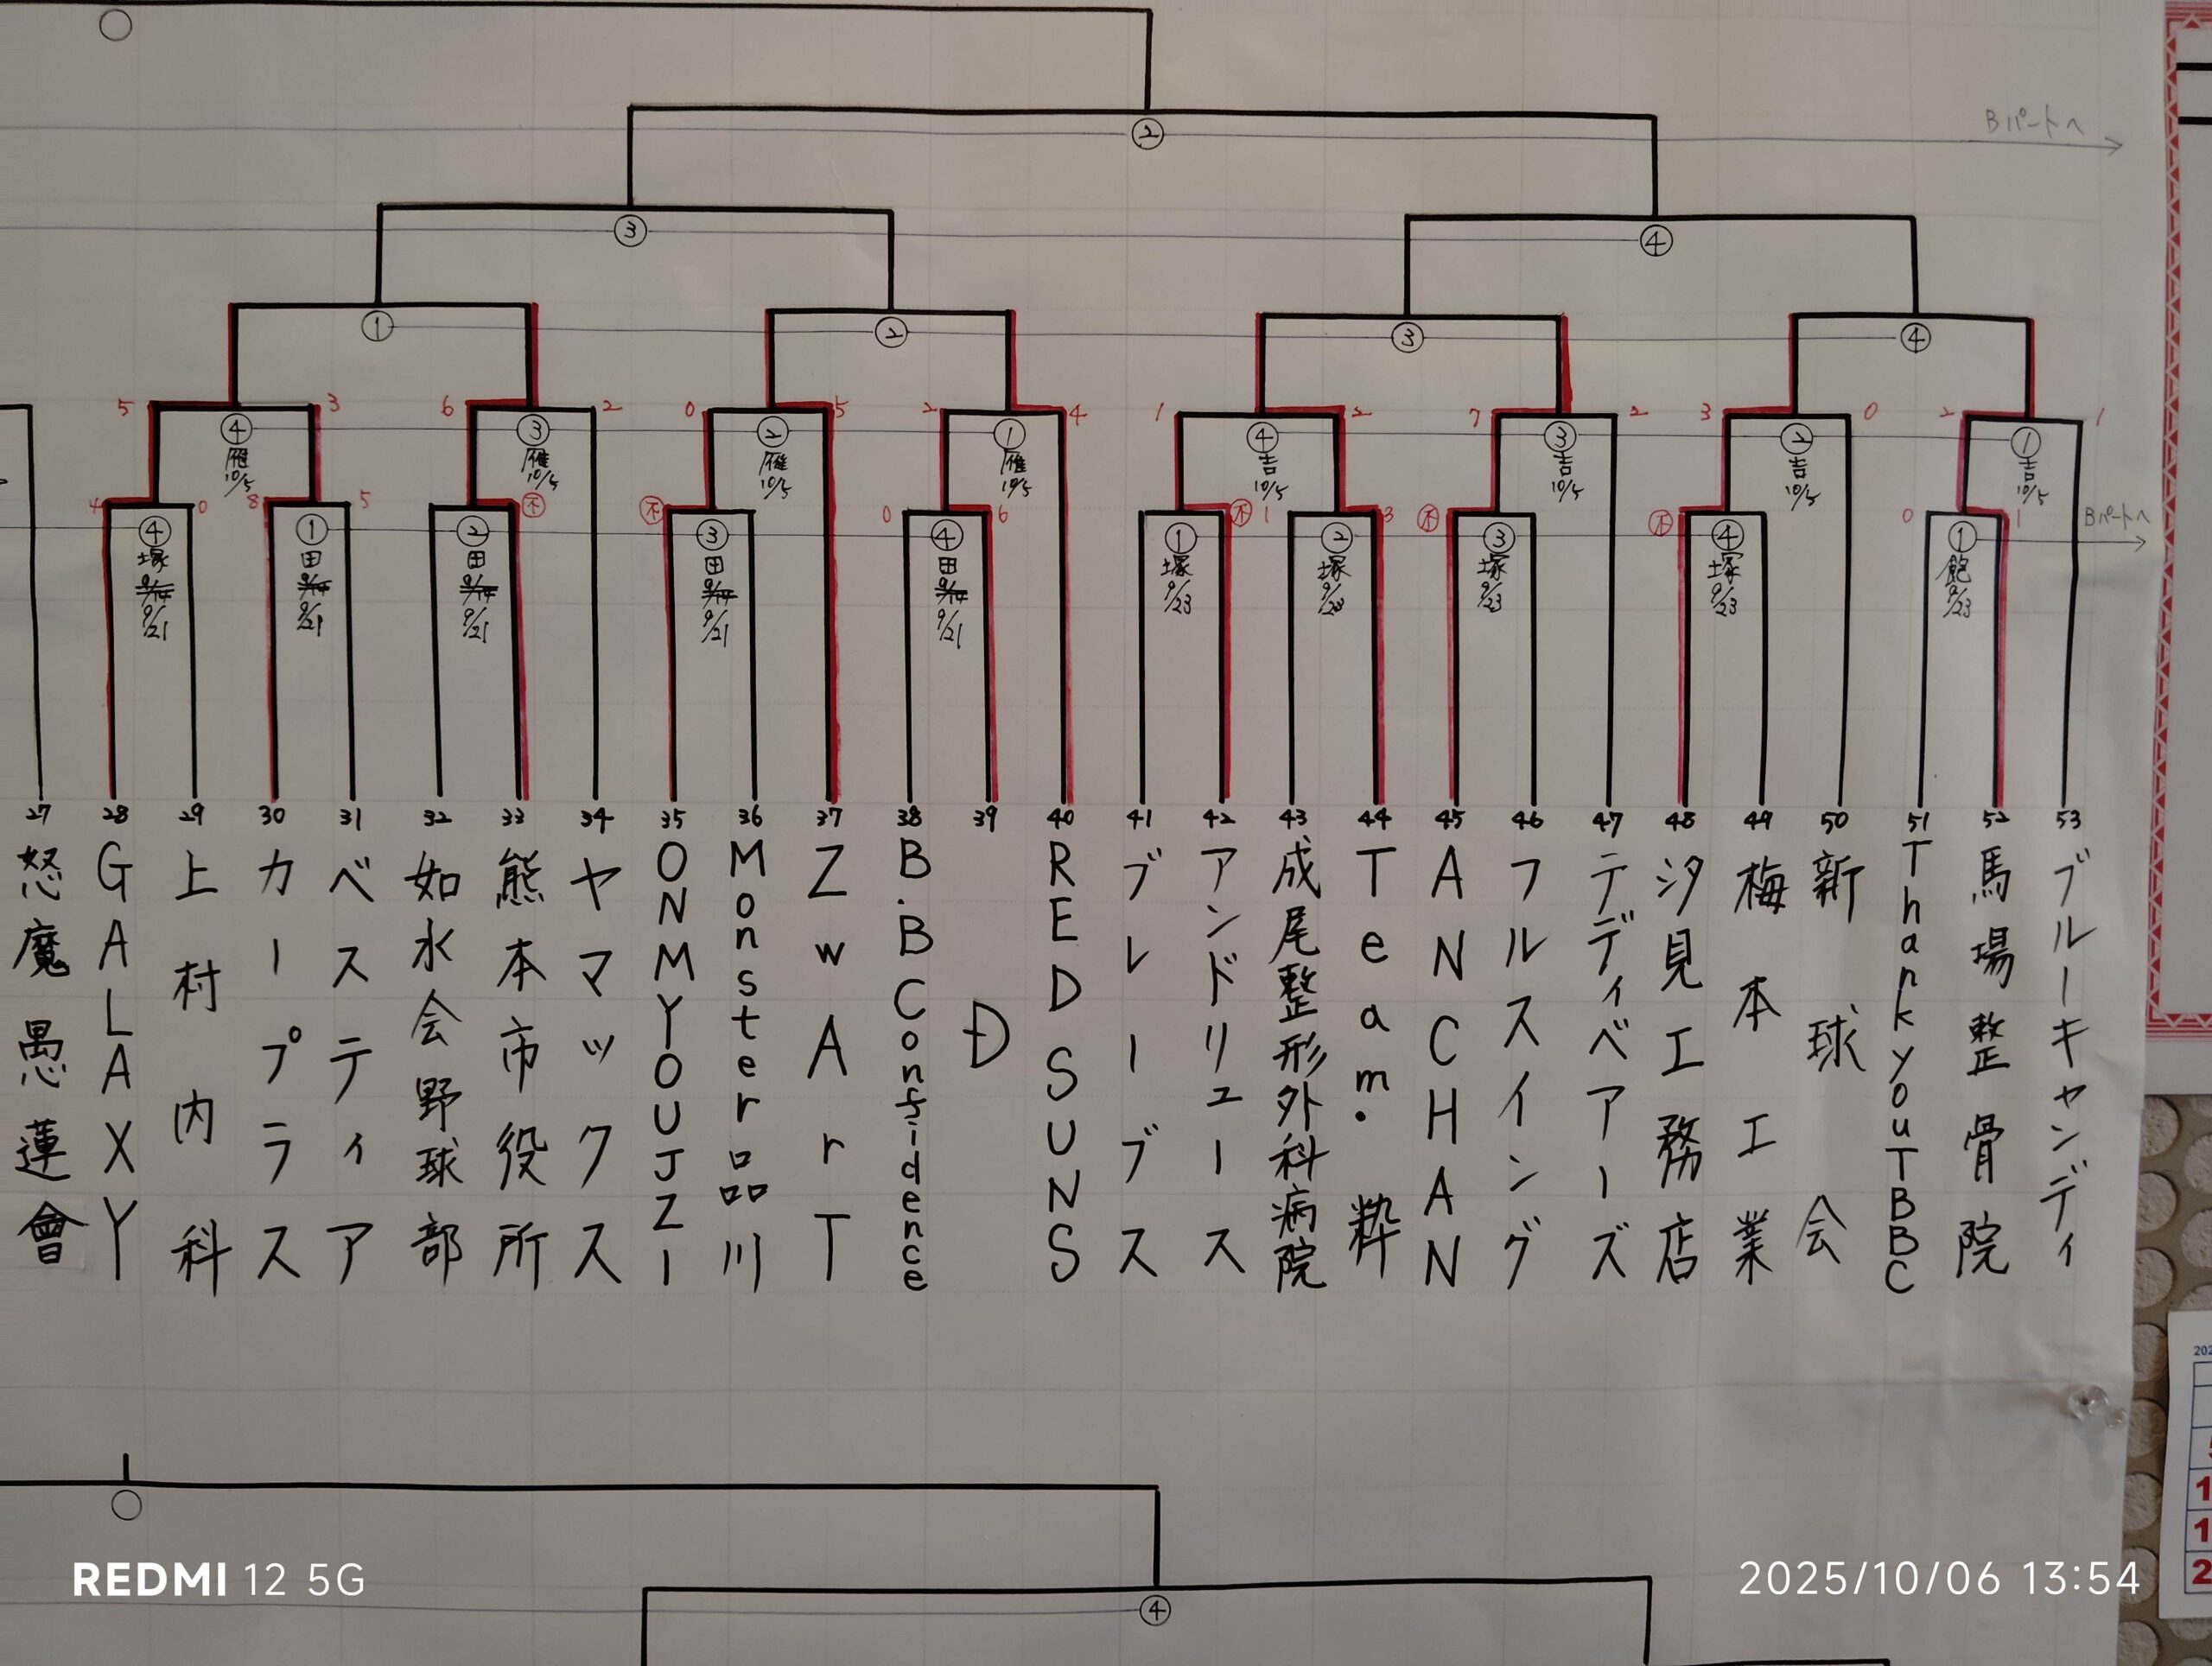 ②
Bパートへ
③
④
①
②
③
④
5
3
6
2
0
5
2
4
1
2
7
2
3
0
2
1
④
③
②
①
④
③
②
①
雁
雁
雁
雁
吉
吉
吉
吉
10/5
10/5
10/5
10/5
10/5
10/5
10/5
10/5
4
0
8
5
不
不
0
6
不
1
3
不
不
0
1
Bパートへ
④
①
②
③
④
①
②
③
④
①
塚
田
田
田
田
塚
塚
塚
塚
飽
9/14
9/14
9/14
9/14
9/14
9/21
9/21
9/21
9/21
9/21
9/23
9/23
9/23
9/23
9/23
27 怒魔愚蓮會
28 GALAXY
29 上村内科
30 カープラス
31 ベスティア
32 如水会野球部
33 熊本市役所
34 ヤマックス
35 ONMYOUJZI
36 Monster品川
37 ZwArT
38 B.B Confidence
39 Đ
40 RED SUNS
41 ブレーブス
42 アンドリュース
43 成尾整形外科病院
44 Team・粋
45 ANCHAN
46 フルスイング
47 テディベアーズ
48 汐見工務店
49 梅本工業
50 新球会
51 ThankyouTBBC
52 馬場整骨院
53 ブルーキャンディ
④
REDMI 12 5G
2025/10/06 13:54